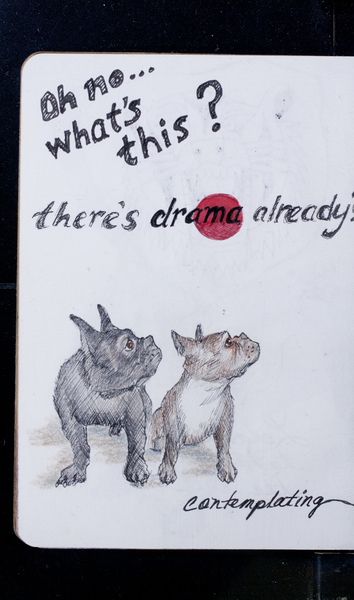 Oh no...
what's
this?
there's drama already's
contemplating